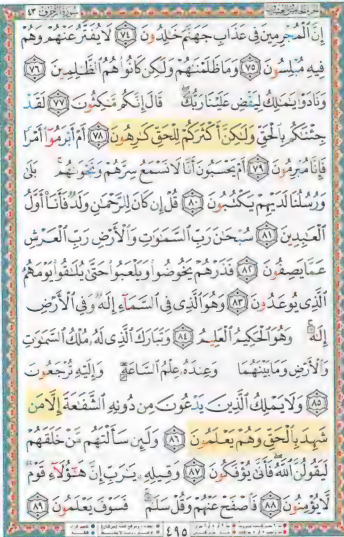 سورة الزخرف ٤٣
إِنَّ ٱلْمُجْرِمِينَ فِى عَذَابِ جَهَنَّمَ خَٰلِدُونَ ٧٤ لَا يُفَتَّرُ عَنْهُمْ وَهُمْ
فِيهِ مُبْلِسُونَ ٧٥ وَمَا ظَلَمْنَٰهُمْ وَلَٰكِن كَانُوا۟ هُمُ ٱلظَّٰلِمِينَ ٧٦
وَنَادَوْا۟ يَٰمَٰلِكُ لِيَقْضِ عَلَيْنَا رَبُّكَ ۖ قَالَ إِنَّكُم مَّٰكِثُونَ ٧٧ لَقَدْ
جِئْنَٰكُم بِٱلْحَقِّ وَلَٰكِنَّ أَكْثَرَكُمْ لِلْحَقِّ كَٰرِهُونَ ٧٨ أَمْ أَبْرَمُوٓا۟ أَمْرًا
فَإِنَّا مُبْرِمُونَ ٧٩ أَمْ يَحْسَبُونَ أَنَّا لَا نَسْمَعُ سِرَّهُمْ وَنَجْوَىٰهُم ۚ بَلَىٰ
وَرُسُلُنَا لَدَيْهِمْ يَكْتُبُونَ ٨٠ قُلْ إِن كَانَ لِلرَّحْمَٰنِ وَلَدٌ فَأَنَا۠ أَوَّلُ
ٱلْعَٰبِدِينَ ٨١ سُبْحَٰنَ رَبِّ ٱلسَّمَٰوَٰتِ وَٱلْأَرْضِ رَبِّ ٱلْعَرْشِ
عَمَّا يَصِفُونَ ٨٢ فَذَرْهُمْ يَخُوضُوا۟ وَيَلْعَبُوا۟ حَتَّىٰ يُلَٰقُوا۟ يَوْمَهُمُ
ٱلَّذِى يُوعَدُونَ ٨٣ وَهُوَ ٱلَّذِى فِى ٱلسَّمَآءِ إِلَٰهٌ وَفِى ٱلْأَرْضِ
إِلَٰهٌ ۚ وَهُوَ ٱلْحَكِيمُ ٱلْعَلِيمُ ٨٤ وَتَبَارَكَ ٱلَّذِى لَهُۥ مُلْكُ ٱلسَّمَٰوَٰتِ
وَٱلْأَرْضِ وَمَا بَيْنَهُمَا وَعِندَهُۥ عِلْمُ ٱلسَّاعَةِ وَإِلَيْهِ تُرْجَعُونَ
٨٥ وَلَا يَمْلِكُ ٱلَّذِينَ يَدْعُونَ مِن دُونِهِ ٱلشَّفَٰعَةَ إِلَّا مَن
شَهِدَ بِٱلْحَقِّ وَهُمْ يَعْلَمُونَ ٨٦ وَلَئِن سَأَلْتَهُم مَّنْ خَلَقَهُمْ
لَيَقُولُنَّ ٱللَّهُ ۖ فَأَنَّىٰ يُؤْفَكُونَ ٨٧ وَقِيلِهِۦ يَٰرَبِّ إِنَّ هَٰٓؤُلَآءِ قَوْمٌ
لَّا يُؤْمِنُونَ ٨٨ فَٱصْفَحْ عَنْهُمْ وَقُلْ سَلَٰمٌ ۚ فَسَوْفَ يَعْلَمُونَ ٨٩
٤٩٥